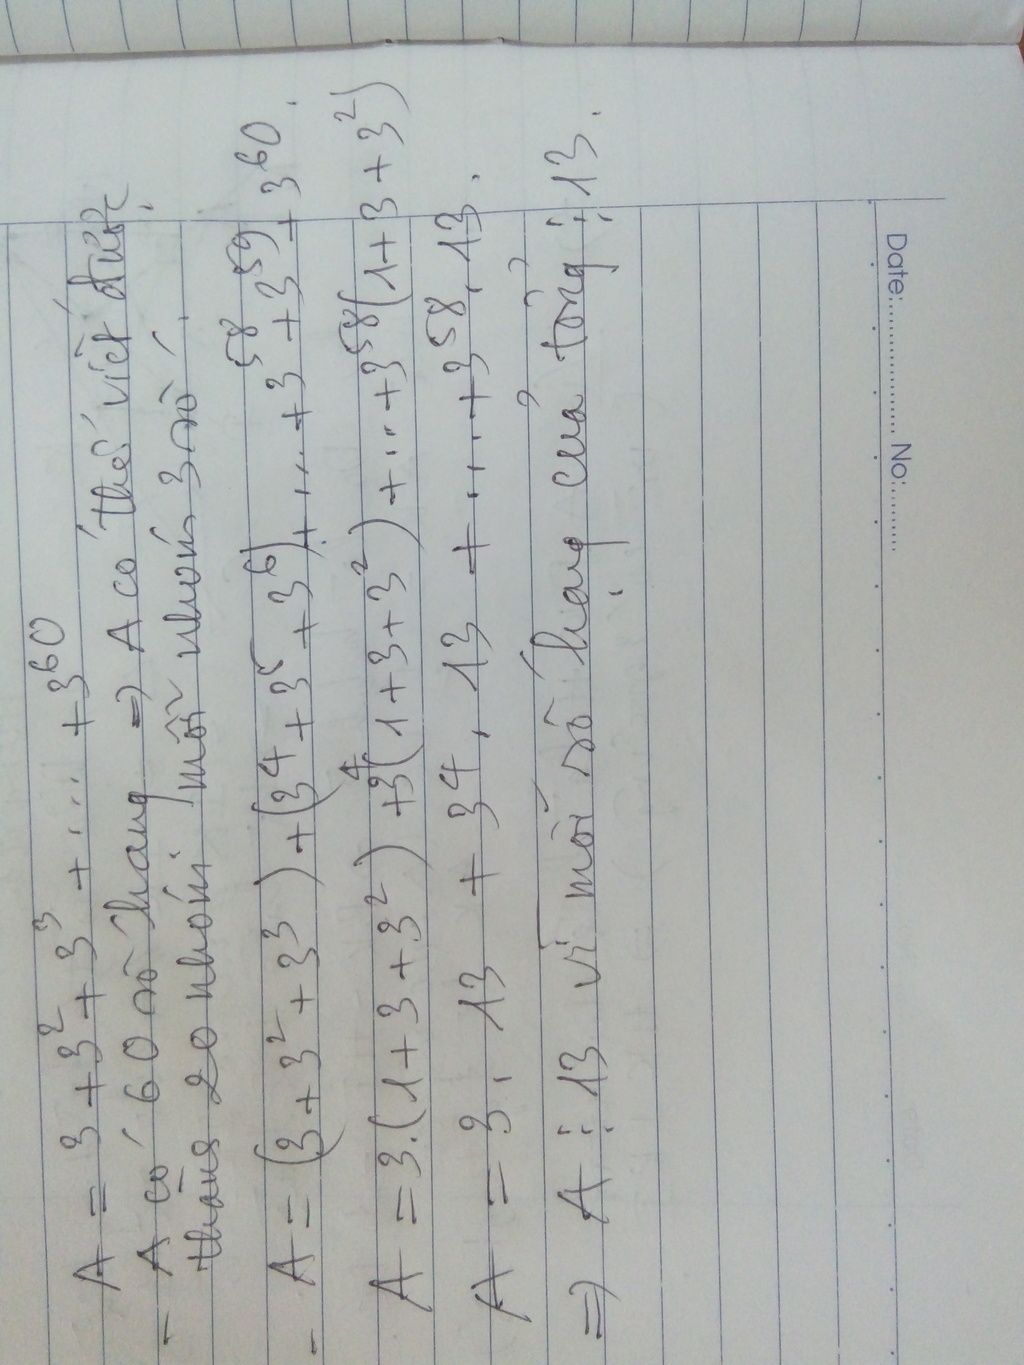 A = 3 + 3² + 3³ + ... + 3⁶⁰
- A có 60 số hạng => A có thể viết được
thành 20 nhóm, mỗi nhóm 3 số.
- A = (3 + 3² + 3³) + (3⁴ + 3⁵ + 3⁶) + ... + 3⁵⁸ + 3⁵⁹ + 3⁶⁰.
A = 3.(1 + 3 + 3²) + 3⁴(1 + 3 + 3²) + ... + 3⁵⁸(1 + 3 + 3²)
A = 3. 13 + 3⁴. 13 + .... + 3⁵⁸. 13.
=> A ⋮ 13 vì mỗi số hạng của tổng ⋮ 13.
Date:.................. No:.........